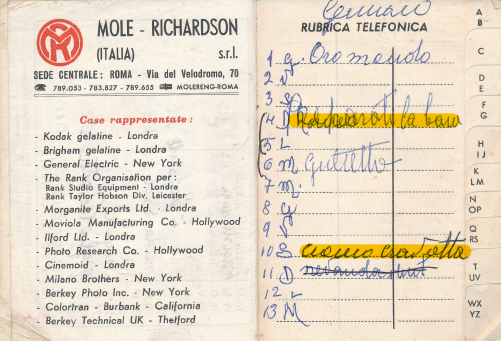 MOLE - RICHARDSON
(ITALIA) s.r.l.
SEDE CENTRALE: ROMA - Via del Velodromo, 70
789.053 - 783.827 - 789.655 MOLERENG-ROMA
Case rappresentate:
- Kodak gelatine - Londra
- Brigham gelatine - Londra
- General Electric - New York
- The Rank Organisation per:
Rank Studio Equipment - Londra
Rank Taylor Hobson Div. Leicester
- Morganite Exports Ltd. - Londra
- Moviola Manufacturing Co. - Hollywood
- Ilford Ltd. - Londra
- Photo Research Co. - Hollywood
- Cinemoid - Londra
- Milano Brothers - New York
- Berkey Photo Inc. - New York
- Colortran - Burbank - California
- Berkey Technical UK - Thetford
Gennaio
RUBRICA TELEFONICA
1 G.
2 V
3 S
4 D
5 L
6 M
7 M.
8 G
9 V
10 S
11 D
12 L
13 M
A
B
C
DE
FG
HIJ
KLM
NOP
QRS
TUV
WXYZ